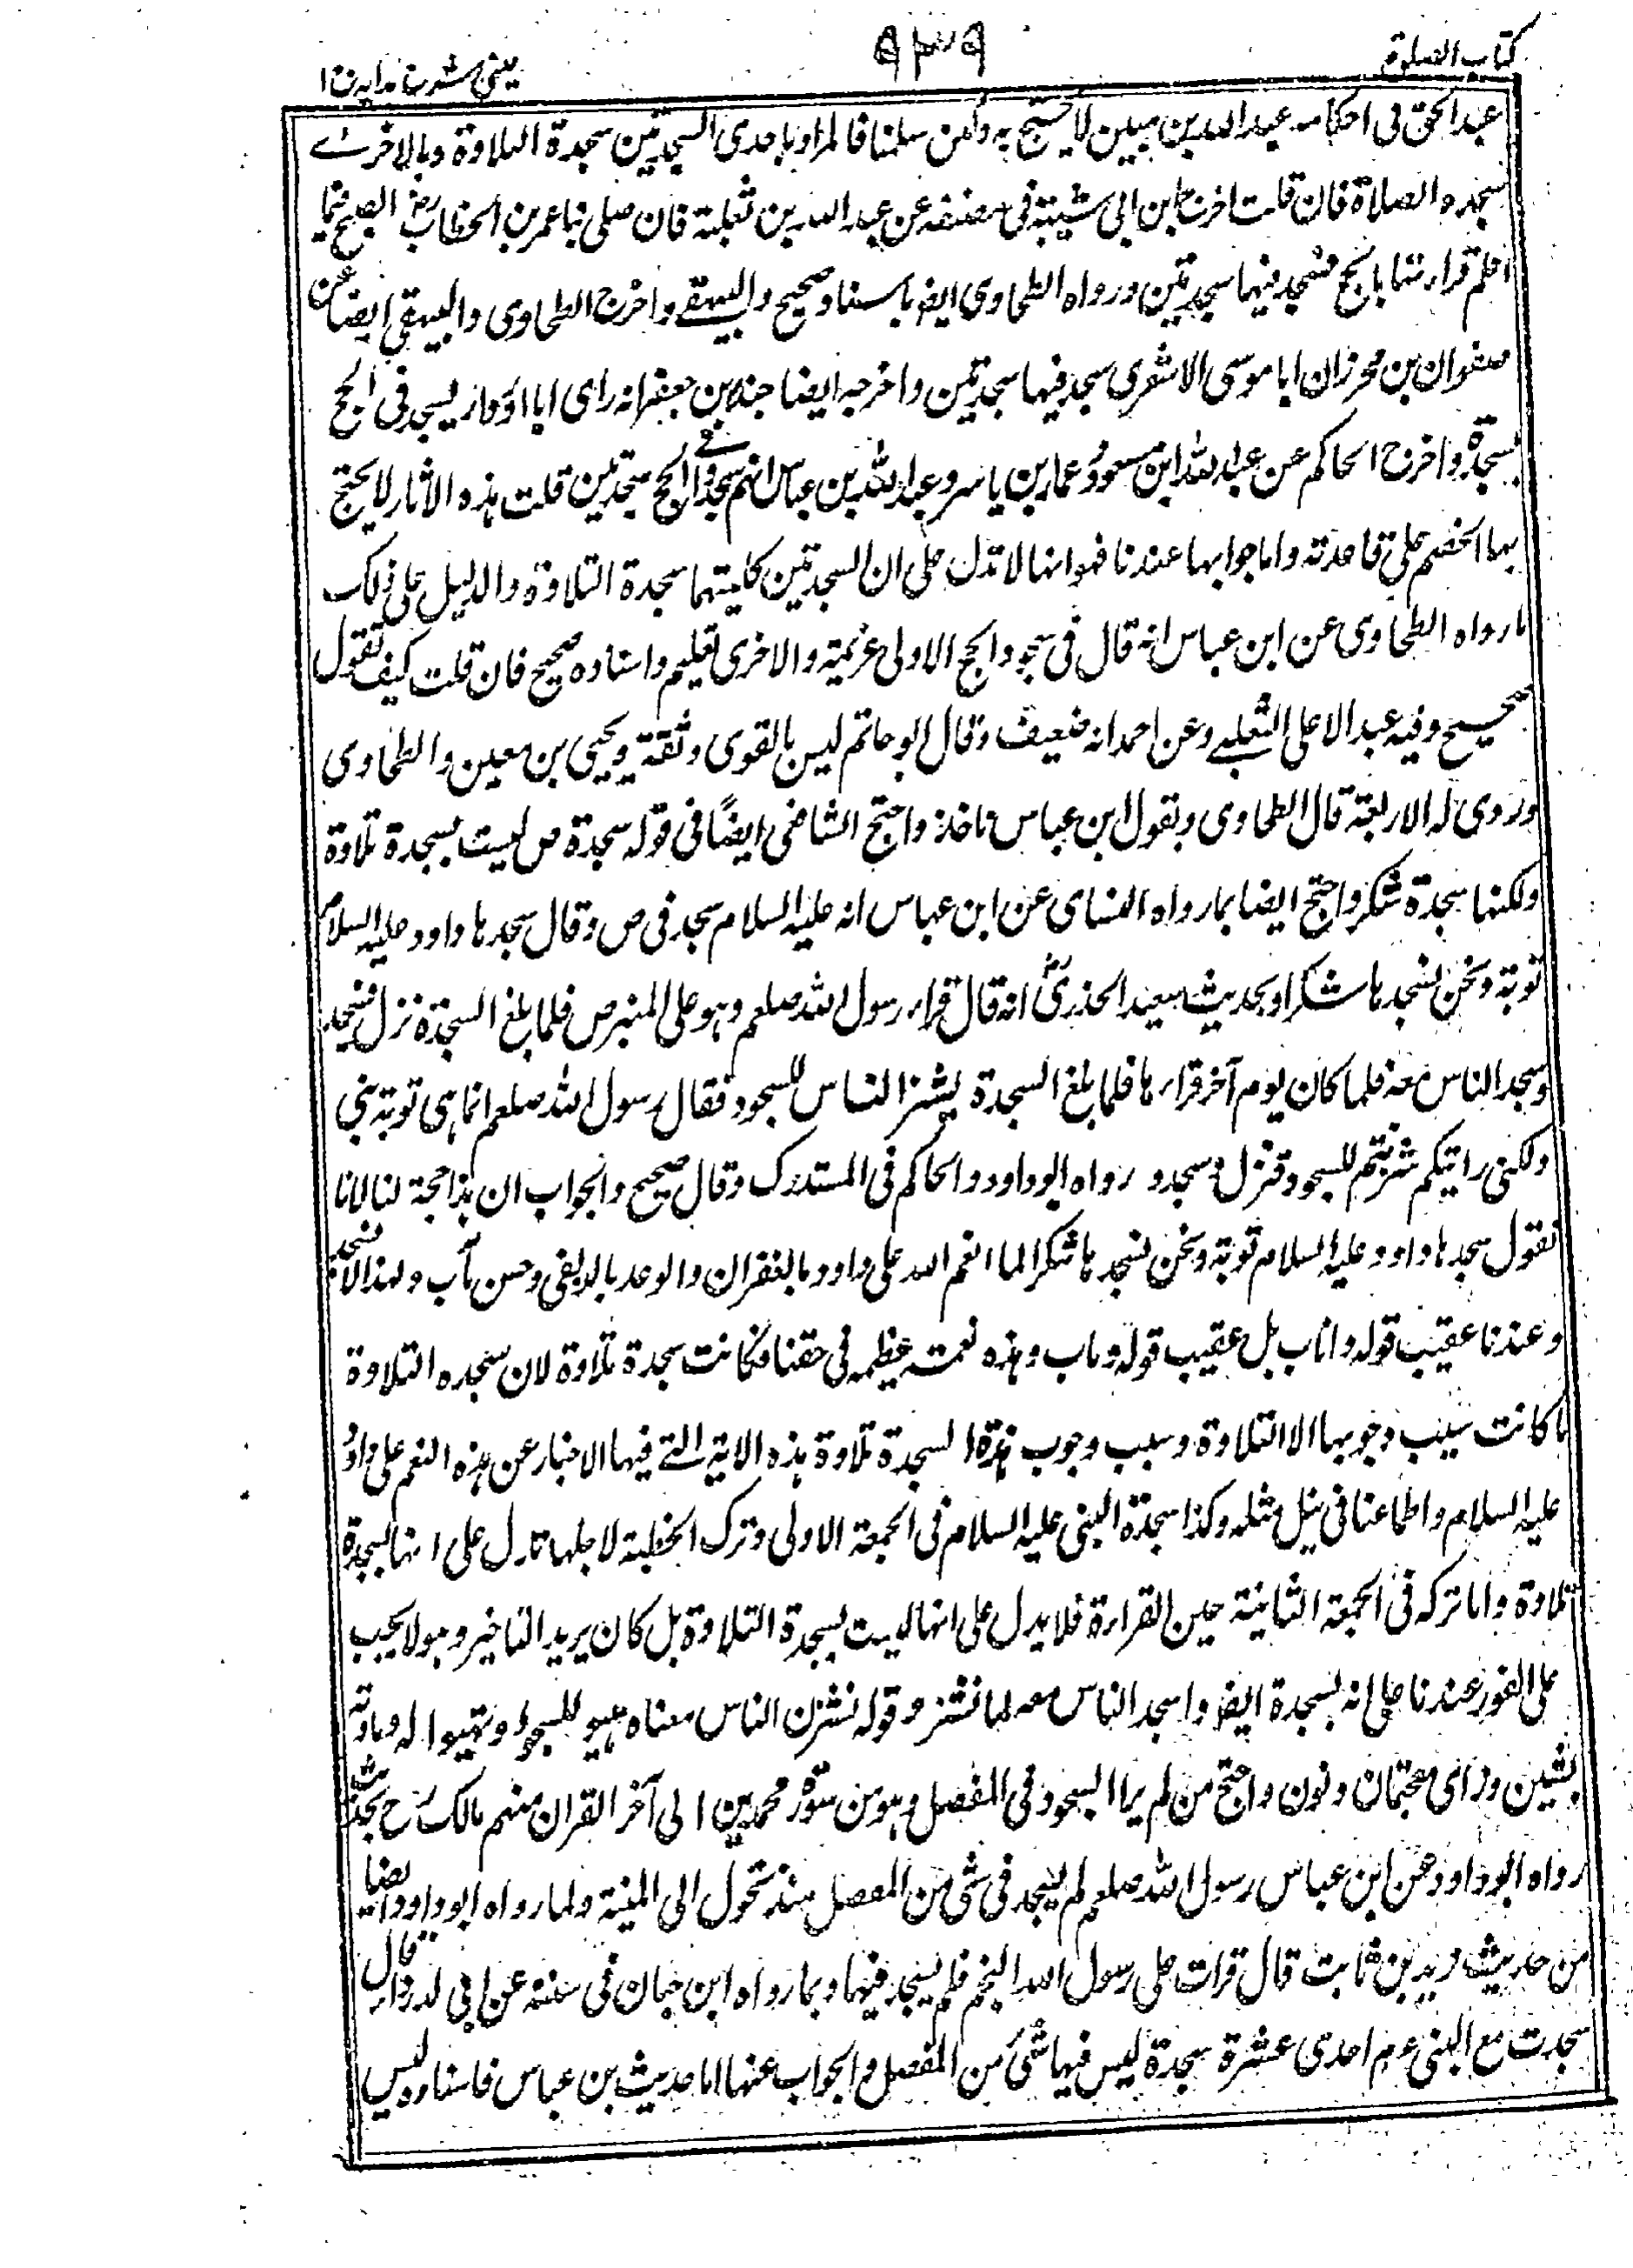 كتاب الصلوة
٩٣٩
عينى شرح هدايه ج ١
عبد الحق فى احكامه عبد الله بن مبين لا يحتج به ولئن سلمنا فالمراد باحدى السجدتين سجدة التلاوة وبالاخرے
سجده الصلاة فان قلت اخرج ابن ابى شيبة فى مصنفه عن عبد الله بن ثعلبة فان صلى بنا عمر بن الخطاب رض الصبح فيما
اعلم قرار بنا بالحج فسجد فيها سجدتين ورواه الطحاوى ايضا باسناد صحيح والبيهقے واخرج الطحاوى والبيهقى ايضا عن
صفوان بن محرز ان ابا موسى الاشعرى سجد فيها سجدتين واخرجه ايضا جبير بن جعفر انه راى ابا الدرداء يسجد فى الحج
سجدة واخرج الحاكم عن عبد الله ابن مسعود وعمار بن ياسر وعبد الله بن عباس انهم سجدوا فے الحج سجدتين قلت هذه الاثار لا يحتج
بها الخصم على قاعدته واما جوابها عندنا فهو انها لا تدل على ان السجدتين كليتهما سجدة التلاوة والدليل على ذلك
ما رواه الطحاوى عن ابن عباس انه قال فى سجود الحج الاولى عزيمة والاخرى تعليم واسناده صحيح فان قلت كيف تقول
صحيح وفيه عبد الاعلى الثعلبے وعن احمد انه ضعيف وقال ابو حاتم ليس بالقوى وثقة يحيى بن معين والطحاوى
وروى له الاربعة قال الطحاوى وبقول ابن عباس ناخذ واحتج الشافعى ايضًا فى قوله سجدة ص ليست بسجدة تلاوة
ولكنها سجدة شكر واحتج ايضا بما رواه النساى عن ابن عباس انه عليه السلام سجد فى ص وقال سجدها داود عليه السلام
توبة ونحن نسجدها شكرا وبحديث سعيد الخدرى رض انه قال قرار رسول الله صلعم وهو على المنبر ص فلما بلغ السجدة نزل فسجد
وسجد الناس معه فلما كان يوم آخر قرارها فلما بلغ السجدة يشزن الناس للسجود فقال رسول الله صلعم انما هى توبة نبي
ولكنى رايتكم شزنتم للسجود فنزل وسجد و رواه ابو داود والحاكم فى المستدرك وقال صحيح والجواب ان هذا حجة لنا لانا
نقول سجدها داود عليه السلام توبة ونحن نسجدها شكرا لما انعم الله على داود بالغفران والوعد بالزلفى وحسن مآب ولهذا لا نسجد
وعندنا عقيب قوله واناب بل عقيب قوله وماب وهذه نعمة عظيمه فى حقنا فكانت سجدة تلاوة لان سجده التلاوة
ما كانت سبب وجوبها الا التلاوة وسبب وجوب هذه السجدة تلاوة هذه الاية التے فيها الاخبار عن هذه النعم على داود
عليه السلام واطماعنا فى نيل مثله وكذا سجدة النبى عليه السلام فى الجمعة الاولى وترك الخطبة لاجلها تدل على انها سجدة
تلاوة واما تركه فى الجمعة الثانية حين القراءة فلا يدل على انها ليست بسجدة التلاوة بل كان يريد التاخير وهو لا يجب
على الفور عندنا على انه سجدة ايضا واسجد الناس معه لما تشزن وقوله تشزن الناس معناه تهيو للسجود وتهيوا له ومادته
بشين وزاى معجمتان ونون واحتج من لم ير السجود فى المفصل وهو من سورة محمد الى آخر القران منهم مالك رح بحديث
رواه ابو داود عن ابن عباس رسول الله صلعم لم يسجد فى شى من المفصل منذ تحول الى المدينة ولما رواه ابو داود ايضا
من حديث زيد بن ثابت قال قرات على رسول الله النجم فلم يسجد فيها وبما رواه ابن حبان فى سننه عن ابى الدرداء قال
سجدت مع النبى عم احدى عشرة سجدة ليس فيها شئ من المفصل والجواب عنها اما حديث بن عباس فاسناده ليس